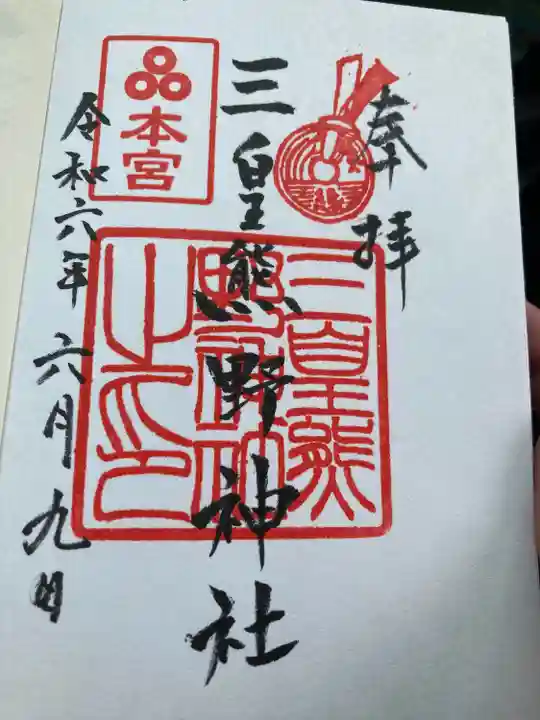 奉拝
三皇熊野神社
三皇熊
野神社
之印
本宮
令和六年六月九日